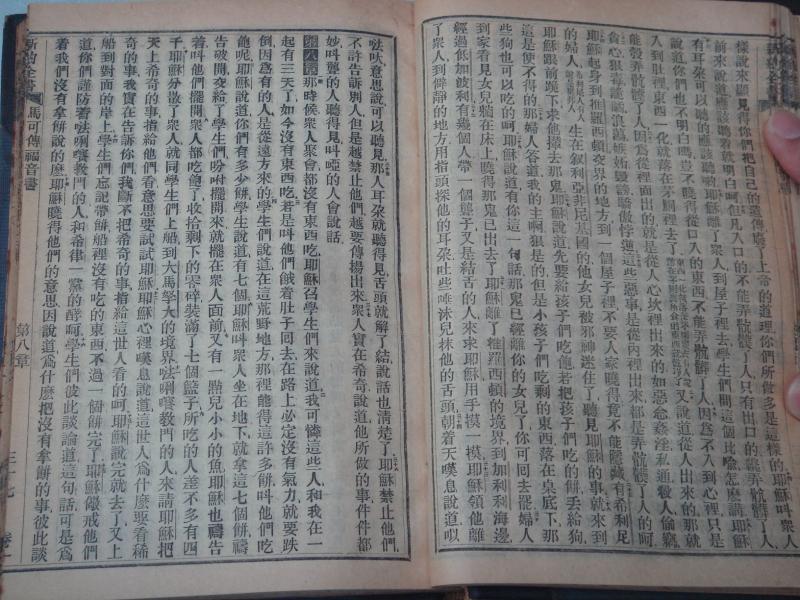 樣說來顯見你們把自己的遺傳廢了上帝的道理你們所做多是這樣的耶穌叫衆人
前來說道應該聽着就明白呵但凡入口的不能弄骯髒了人只有出口的纔弄骯髒了人
有耳朶可以聽的應該聽喲耶穌離了衆人到屋子裡去學生們問這個比喻怎麼講耶穌
說道你們也不明白嗎豈不曉得從入口的東西不能弄骯髒了人因爲不入到心裡只是
入到肚裡東西一化就落在茅厠裡去了又說道從人中出來的那就
能彀弄骯髒了人因爲從裡面出的就是從人心坎裡出來的如惡念姦淫私通殺人偷竊
貪心狠毒謊騙浪蕩嫉妬驕傲悖謬這些惡事是從內裡出來都是弄骯髒了人的呵
耶穌起身到推羅西頓交界的地方到一個屋子裡不要人家曉得竟不能隱藏有希利尼
的婦人生在叙利亞非尼基國的他女兒被邪神迷住了聽見耶穌的事就來到
耶穌跟前跪下求他攆去那鬼耶穌說道先要給孩子們吃飽若把孩子們吃的餅丢給狗
這是使不得的那婦人答道我的主啊狠是的但是小孩子們吃剩的東西落在桌底下那
些狗也可以吃的呵耶穌說道有你這一句話那鬼已經離你的女兒了你可回去罷婦人
到家看見女兒躺在床上曉得那鬼已出去了耶穌離了推羅西頓的境界到加利利海邊
經過低加波利有幾個人帶一個聾子又是結舌的人來求耶穌用手摸一摸耶穌領他離
了衆人到僻靜的地方用指頭探他的耳朶吐些唾沫兒抹他的舌頭朝着天嘆息說道以
𠲎吠意思說可以聽見那人耳朶就聽得見舌頭就解了結說話也清楚了耶穌禁止他們
不許告訴別人但是越禁止他們越要傳揚出來衆人實在希奇說道他所做的事件件都
妙叫聾的人聽得見叫啞的人會說話
第八章那時候衆人聚會都沒有東西吃耶穌召學生們來說道我可憐這些人和我在一
起有三天了如今沒有東西吃若是叫他們餓着肚子回去在路上必定沒有氣力就要跌
倒因爲有的人是從遠方來的學生們說道在這荒野地方那裡能得這許多餅叫他們吃
飽呢耶穌說道你們有多少餅學生說道有七個耶穌叫衆人坐在地下就拿這七個餅禱
告破開交給了學生們吩咐擺開來就擺在衆人面前又有一點兒小小的魚耶穌也禱告
着叫他們擺開衆人都吃飽了收拾剩下的零碎裝滿了七個籃子所吃的人差不多有四
千耶穌分散了衆人就同學生們上船到大馬拏大的境界法唎㘔教門的人來請耶穌把
天上希奇的事指給他們看意思要試試耶穌耶穌心裡嘆息說道這世人爲什麼要看稀
奇的事我實在告訴你們我斷不把希奇的事指給這世人看的呵耶穌說完就去了又上
船到對面的岸上學生們忘記帶餅船裡沒有吃的東西不過一個餅完了耶穌儆戒他們
道你們謹防着法唎㘔教門的人和希律一黨的酵呵學生們彼此談論道這句話可是爲
着我們沒有拿餅說的麼耶穌曉得他們的意思因說道爲什麼把沒有拿餅的事彼此談
新約全書
馬可傳福音書
第八章
三十七